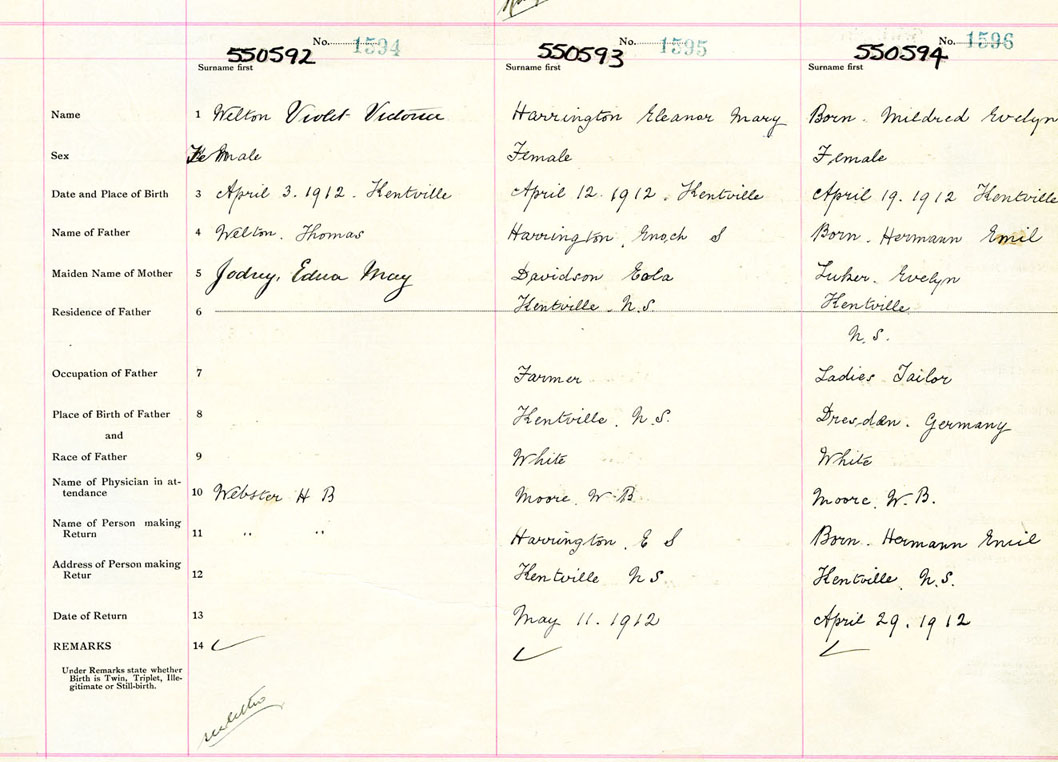 No. 1594 No. 1595 No. 1596
550592 550593 550594
Surname first Surname first Surname first
Name 1 Welton Violet Victoria Harrington Eleanor Mary Born. Mildred Evelyn
Sex Female Female Female
Date and Place of Birth 3 April 3. 1912. Kentville April 12. 1912. Kentville April 19. 1912 Kentville
Name of Father 4 Welton. Thomas Harrington, Enoch S Born. Hermann Emil
Maiden Name of Mother 5 Jodrey, Edna May Davidson Eola Luker. Evelyn
Residence of Father 6 Kentville. N.S. Kentville,
N.S.
Occupation of Father 7 Farmer Ladies Tailor
Place of Birth of Father 8 Kentville, N.S. Dresden. Germany
and
Race of Father 9 White White
Name of Physician in at-
tendance 10 Webster H B Moore, W.B. Moore, W.B.
Name of Person making
Return 11 " " Harrington, E S Born. Hermann Emil
Address of Person making
Retur 12 Kentville N S Kentville, N.S.
Date of Return 13 May 11. 1912 April 29. 1912
REMARKS 14
Under Remarks state whether
Birth is Twin, Triplet, Ille-
gitimate or Still-birth.